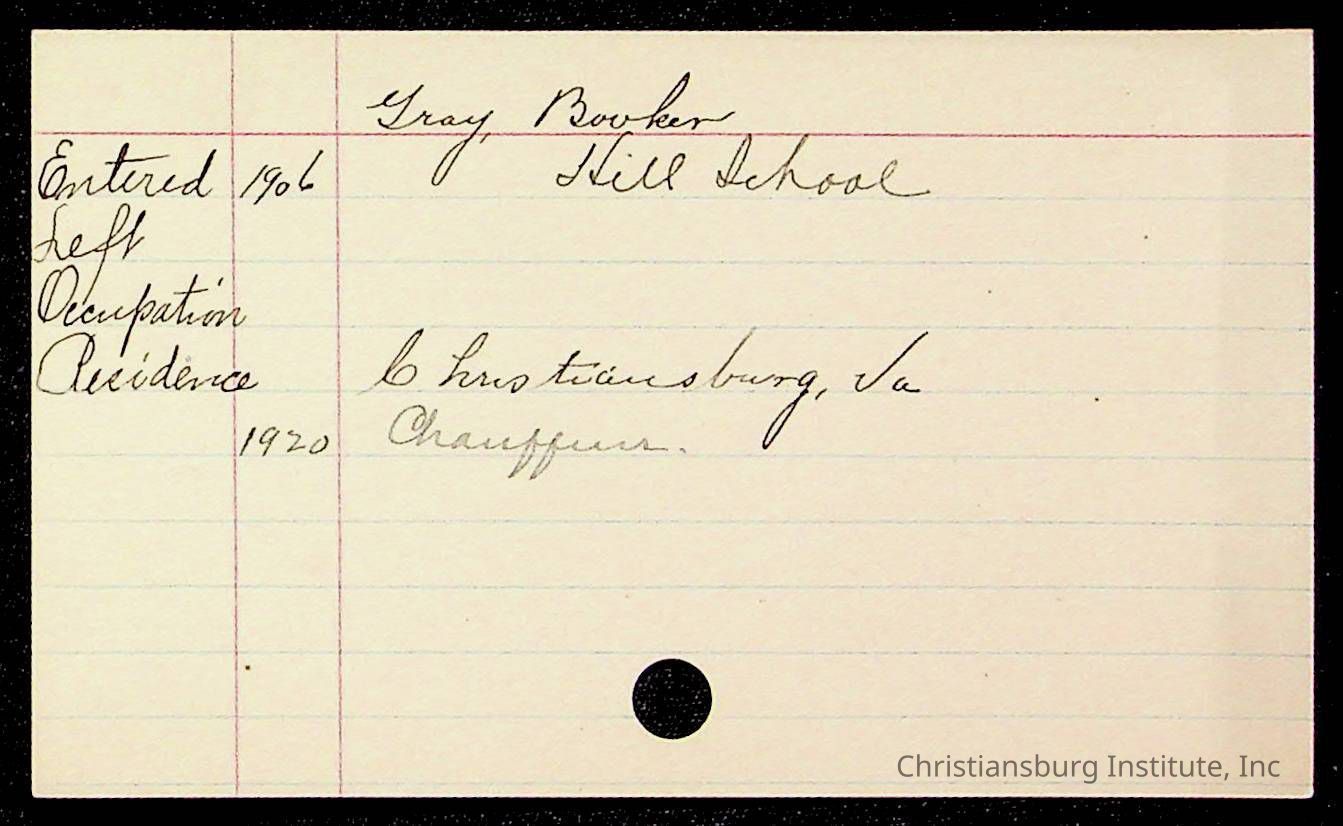 Gray, Booker
Entered 1906 Hill School
Left
Occupation
Residence Christiansburg, Va
1920 Chauffeur.
Christiansburg Institute, Inc